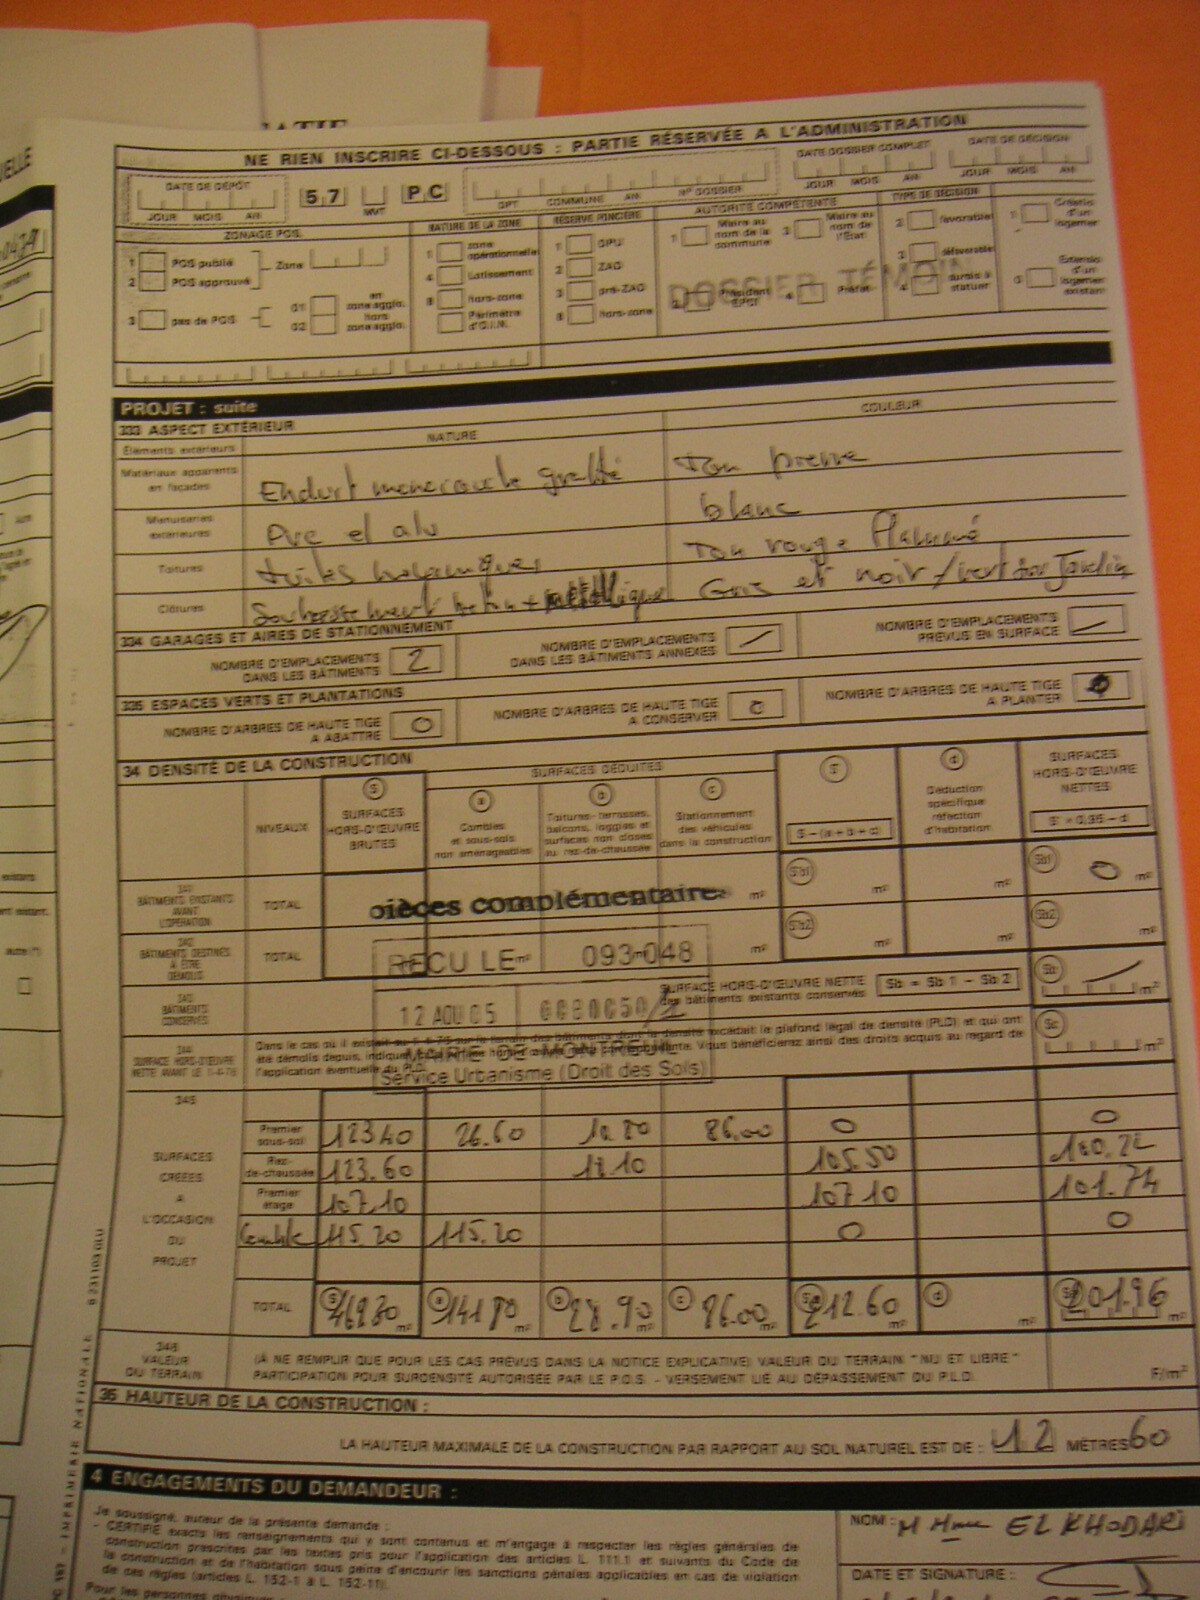 NE RIEN INSCRIRE CI-DESSOUS : PARTIE RÉSERVÉE A L'ADMINISTRATION
DATE DE DÉPÔT
JOUR MOIS AN
5.7 PC
MVT
DPT COMMUNE AN Nº DOSSIER
DATE DOSSIER COMPLET
JOUR MOIS AN
DATE DE DÉCISION
JOUR MOIS AN
ZONAGE POS
1 POS publié
2 POS approuvé
Zone
3 pas de POS
01 en zone agglo.
02 hors zone agglo.
NATURE DE LA ZONE
1 zone opérationnelle
4 Lotissement
8 hors-zone
Périmètre d'O.I.N.
RÉSERVE FONCIÈRE
1 DPU
2 ZAD
3 pré-ZAD
8 hors-zone
AUTORITÉ COMPÉTENTE
1 Maire au nom de la commune
3 Maire au nom de l'État
2 Président EPCI
4 Préfet
TYPE DE DÉCISION
2 favorable
3 défavorable
4 sursis à statuer
DOSSIER TÉMOIN
PROJET : suite
333 ASPECT EXTÉRIEUR
NATURE
COULEUR
Éléments extérieurs
Matériaux apparents en façades
Enduit monocouche gratté
Ton pierre
Menuiseries extérieures
Pvc et alu
blanc
Toitures
tuiles mécaniques
Ton rouge flammé
Clôtures
Soubassement béton + métallique
Gris et noir/vert sur Jardin
334 GARAGES ET AIRES DE STATIONNEMENT
NOMBRE D'EMPLACEMENTS DANS LES BÂTIMENTS 2
NOMBRE D'EMPLACEMENTS DANS LES BÂTIMENTS ANNEXES /
NOMBRE D'EMPLACEMENTS PRÉVUS EN SURFACE /
335 ESPACES VERTS ET PLANTATIONS
NOMBRE D'ARBRES DE HAUTE TIGE A ABATTRE 0
NOMBRE D'ARBRES DE HAUTE TIGE A CONSERVER 0
NOMBRE D'ARBRES DE HAUTE TIGE A PLANTER
34 DENSITÉ DE LA CONSTRUCTION
NIVEAUX
S SURFACES HORS-D'ŒUVRE BRUTES
SURFACES DÉDUITES
a Combles et sous-sols non aménageables
b Toitures-terrasses, balcons, loggias et surfaces non closes au rez-de-chaussée
c Stationnement des véhicules dans la construction
S'
S - (a + b + c)
d Déduction spécifique réfection d'habitation
SURFACES HORS-D'ŒUVRE NETTES
S' x 0,95 - d
341 BÂTIMENTS EXISTANTS AVANT L'OPÉRATION
TOTAL
S'b1 m² m² Sb1 0 m²
pièces complémentaires
342 BÂTIMENTS DESTINÉS A ÊTRE DÉMOLIS
TOTAL
S'b2 m² m² Sb2 m²
REÇU LE 093-048
12 AOU 05
MAIRIE DE MONTREUIL
Service Urbanisme (Droit des Sols)
343 BÂTIMENTS CONSERVÉS
SURFACE HORS-ŒUVRE NETTE des bâtiments existants conservés
Sb = Sb 1 - Sb 2
Sb / m²
344 SURFACE HORS-D'ŒUVRE NETTE AVANT LE 1-4-76
Dans le cas où il existait au 1-4-76 sur le terrain des bâtiments dont la densité excédait le plafond légal de densité (PLD) et qui ont
été démolis depuis, indiquer la surface hors œuvre nette correspondante. Vous bénéficierez ainsi des droits acquis au regard de
l'application éventuelle du PLD.
Sc m²
345
SURFACES CRÉÉES A L'OCCASION DU PROJET
Premier sous-sol 123.40 26.60 10.80 86.00 0 0
Rez-de-chaussée 123.60 18.10 105.50 100.22
Premier étage 107.10 107.10 101.74
Comble 115.20 115.20 0 0
TOTAL S 469.30 m² a 141.80 m² b 28.90 m² c 86.00 m² 212.60 m² d 201.96 m²
346 VALEUR DU TERRAIN
(A NE REMPLIR QUE POUR LES CAS PRÉVUS DANS LA NOTICE EXPLICATIVE) VALEUR DU TERRAIN "NU ET LIBRE"
PARTICIPATION POUR SURDENSITÉ AUTORISÉE PAR LE P.O.S. - VERSEMENT LIÉ AU DÉPASSEMENT DU P.L.D.
F/m²
35 HAUTEUR DE LA CONSTRUCTION :
LA HAUTEUR MAXIMALE DE LA CONSTRUCTION PAR RAPPORT AU SOL NATUREL EST DE : 12 MÈTRES 60
4 ENGAGEMENTS DU DEMANDEUR :
Je soussigné, auteur de la présente demande :
- CERTIFIE exacts les renseignements qui y sont contenus et m'engage à respecter les règles générales de
construction prescrites par les textes pris pour l'application des articles L. 111.1 et suivants du Code de
la construction et de l'habitation sous peine d'encourir les sanctions pénales applicables en cas de violation
de ces règles (articles L. 152-1 à L. 152-11).
Pour les personnes physiques
NOM : M Mme EL KHODARI
DATE ET SIGNATURE :
IMPRIMERIE NATIONALE